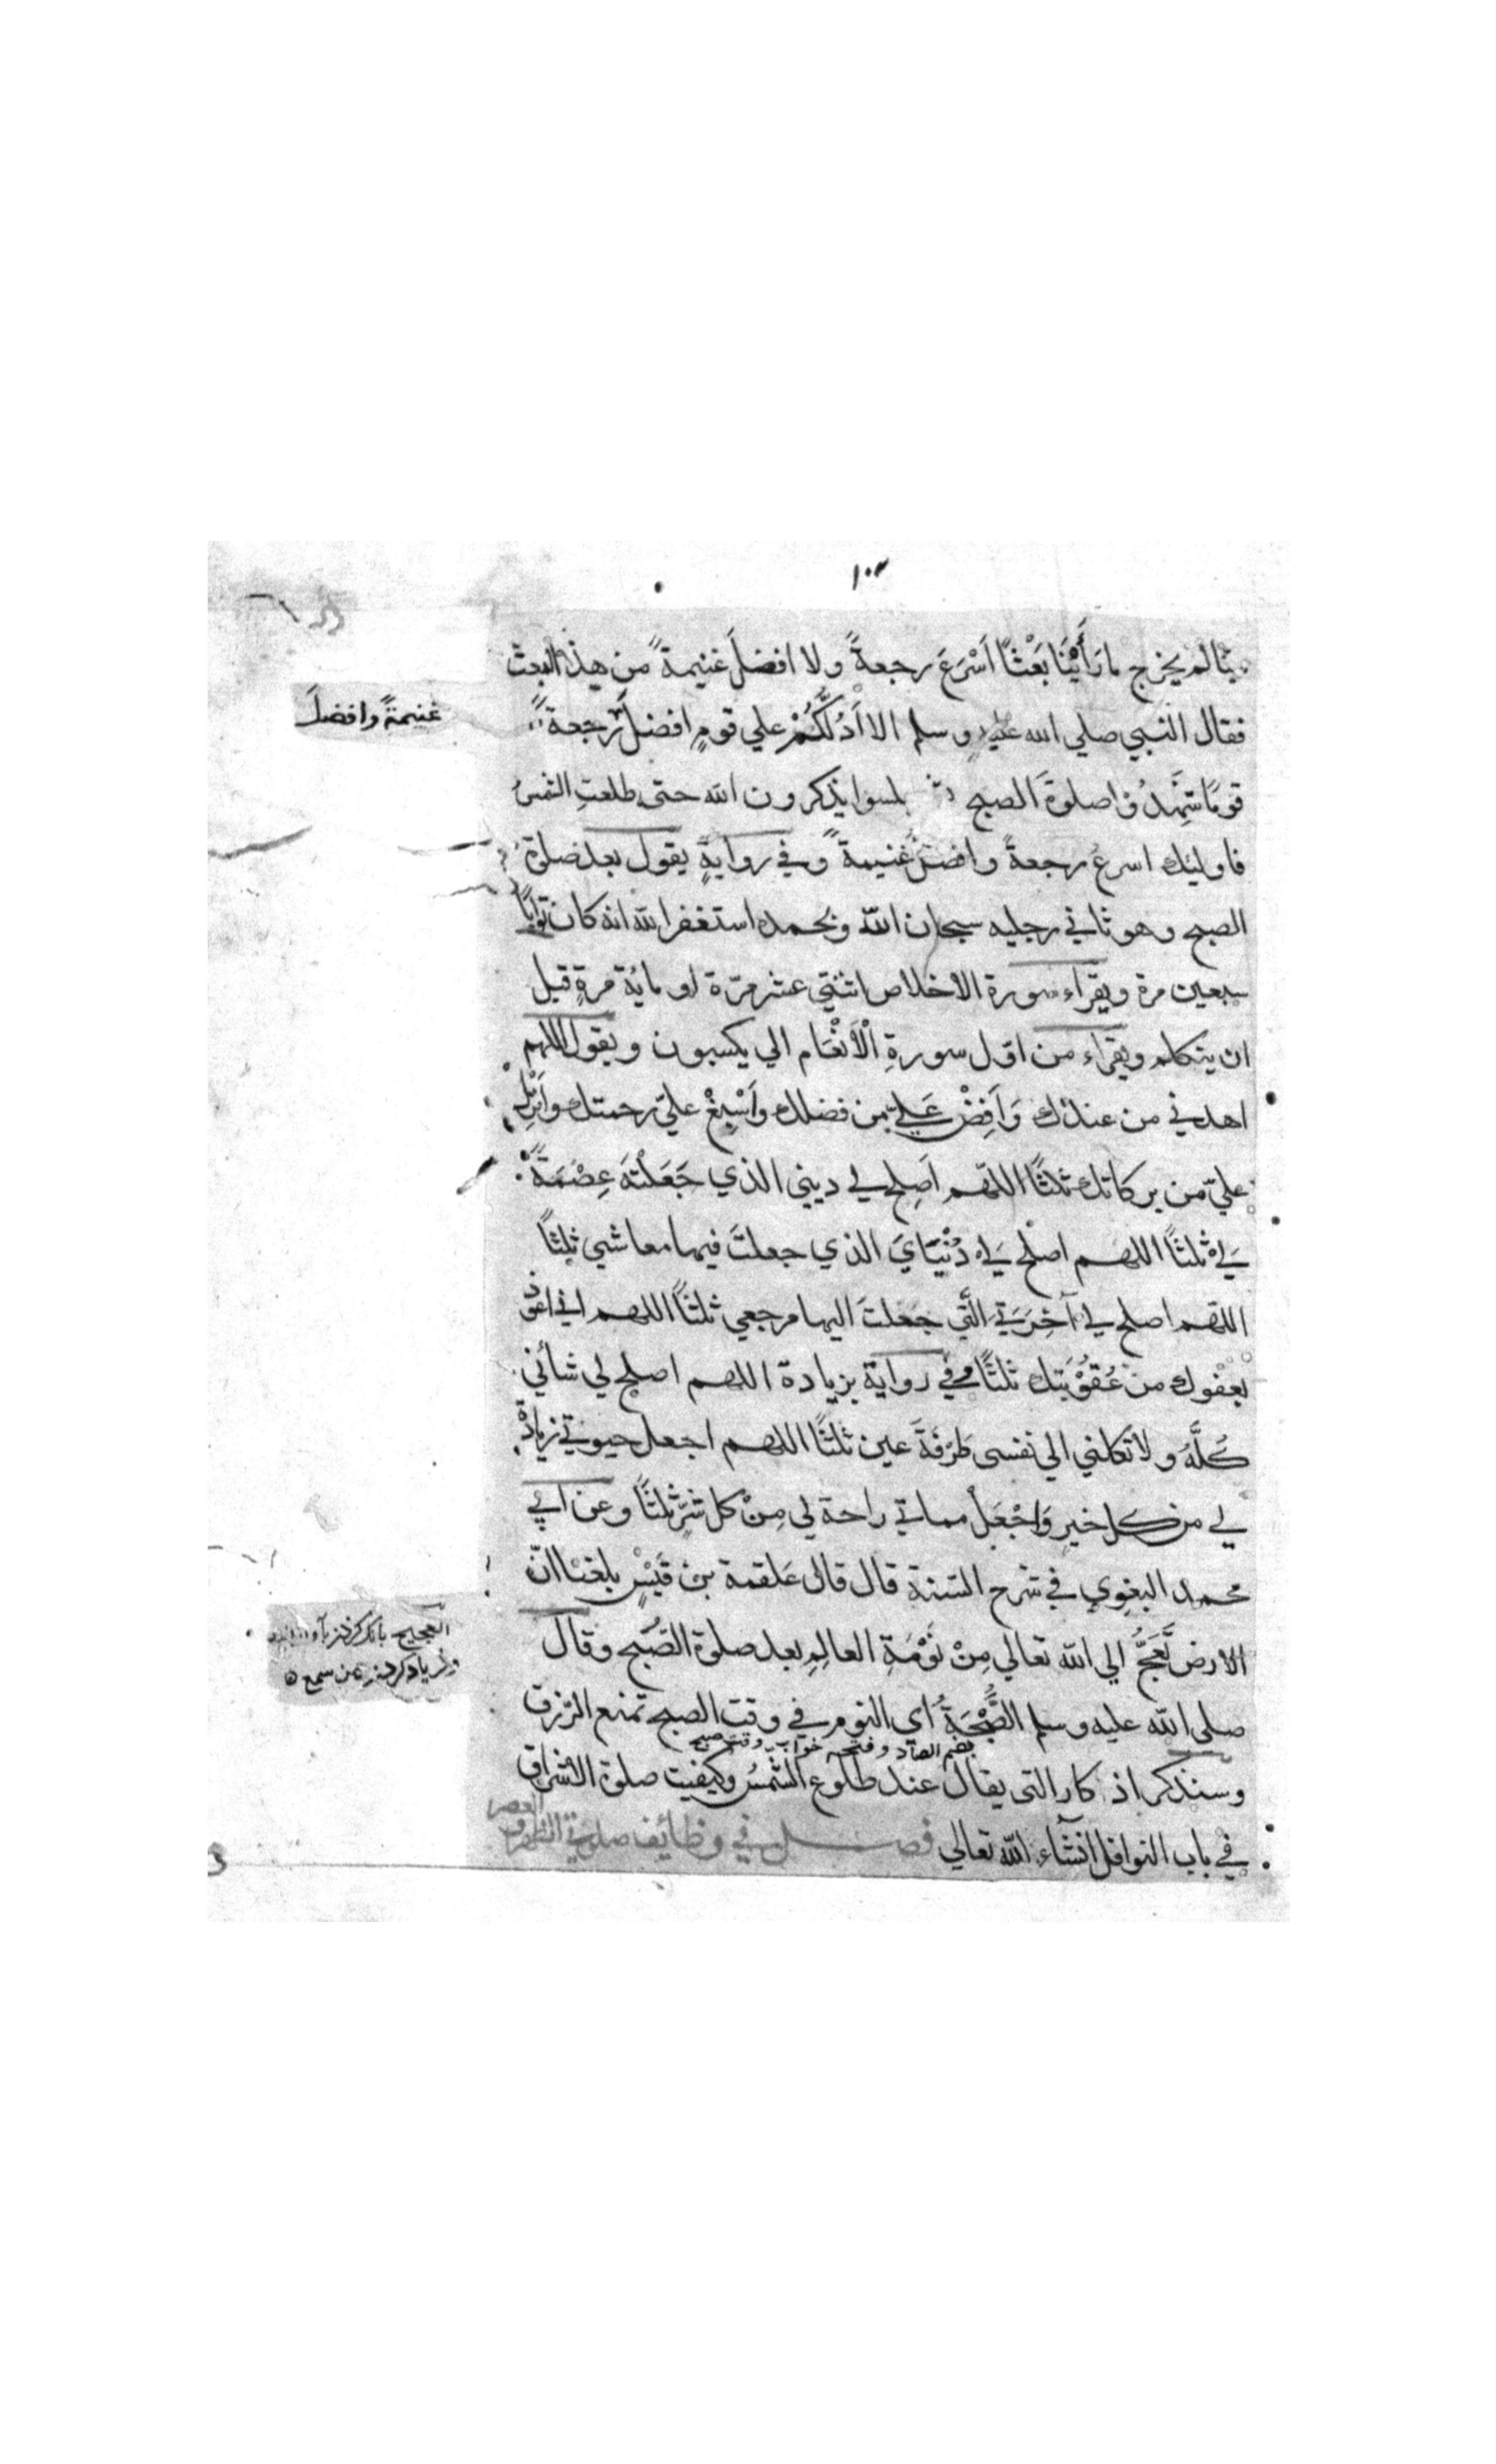 ١٠٣
لم يخرج ما رَأَيْنَا بَعْثًا اَسْرَعَ رجعةً ولا افضلَ غنيمةً من هذا البعث
فقال النبي صلي الله عليه وسلم الا اَدُلُّكُمْ علي قومٍ افضلَ رجعةً
غنيمةً وافضلَ
قومًا شهدُوا صلوةَ الصبح بلسوا يذكرون الله حتى طلعتِ الشمسُ
فاوليك اسرعُ رجعةً وافضلُ غنيمةً وفي روايةٍ يقول بعد صلوة
الصبح وهو ثاني رجليه سبحان الله وبحمده استغفر الله انه كان توابًا
سبعين مرة ويقراء سورة الاخلاص اثنتي عشر مرّة او مائة مرةٍ قبل
ان يتكلم ويقراء من اوّل سورةِ الْاَنْعَام الي يكسبون ويقول اللهم
اهدني من عندك وَاَفِضْ عَلَيّ من فضلك وَاَسْبِغْ عليّ رحمتك واَنْزِلْ
عليّ من بركاتك ثلثًا اللهم اَصلِح لي ديني الذي جَعَلْتَهُ عِصْمَةً
لي ثلثًا اللهم اصلح لي دُنْيَايَ الذي جعلتَ فيها معاشي ثلثًا
اللهم اصلح لي آخِرَتي الَّتي جَعَلتَ اليها مرجعي ثلثًا اللهم اني اعوذ
بعفوك من عُقُوْبَتِك ثلثًا وفي رواية بزيادة اللهم اصلح لي شائني
كُلَّهُ ولا تكلني الي نفسى طَرْفَةَ عين ثلثًا اللهم اجعل حيوتي زيادةً
لي من كل خيرٍ وَاجْعَلْ مماتي راحة لي مِنْ كل شَرٍّ ثلثًا وعن ابي
محمد البغوي في شرح السنة قال قال عَلقمة بن قَيْسٍ بلغنا انّ
الارض تَعِجُّ الي الله تعالي مِنْ نَوْمَةِ العالِمِ بعد صلوة الصُّبح وقال
العجيج بانك كردن
كردن من سمع
صلى الله عليه وسلم الصُّبْحَةُ اي النوم في وقت الصبح تمنع الرّزق
بضم الصاد وفتحه خواب وقت صبح
وسنذكر اذكار التى يقال عند طلوع الشّمسُ وكيفيت صلوة الاشراق
في باب النوافل انشاء الله تعالي فصل في وظائف صلوتي الظهر و
العصر